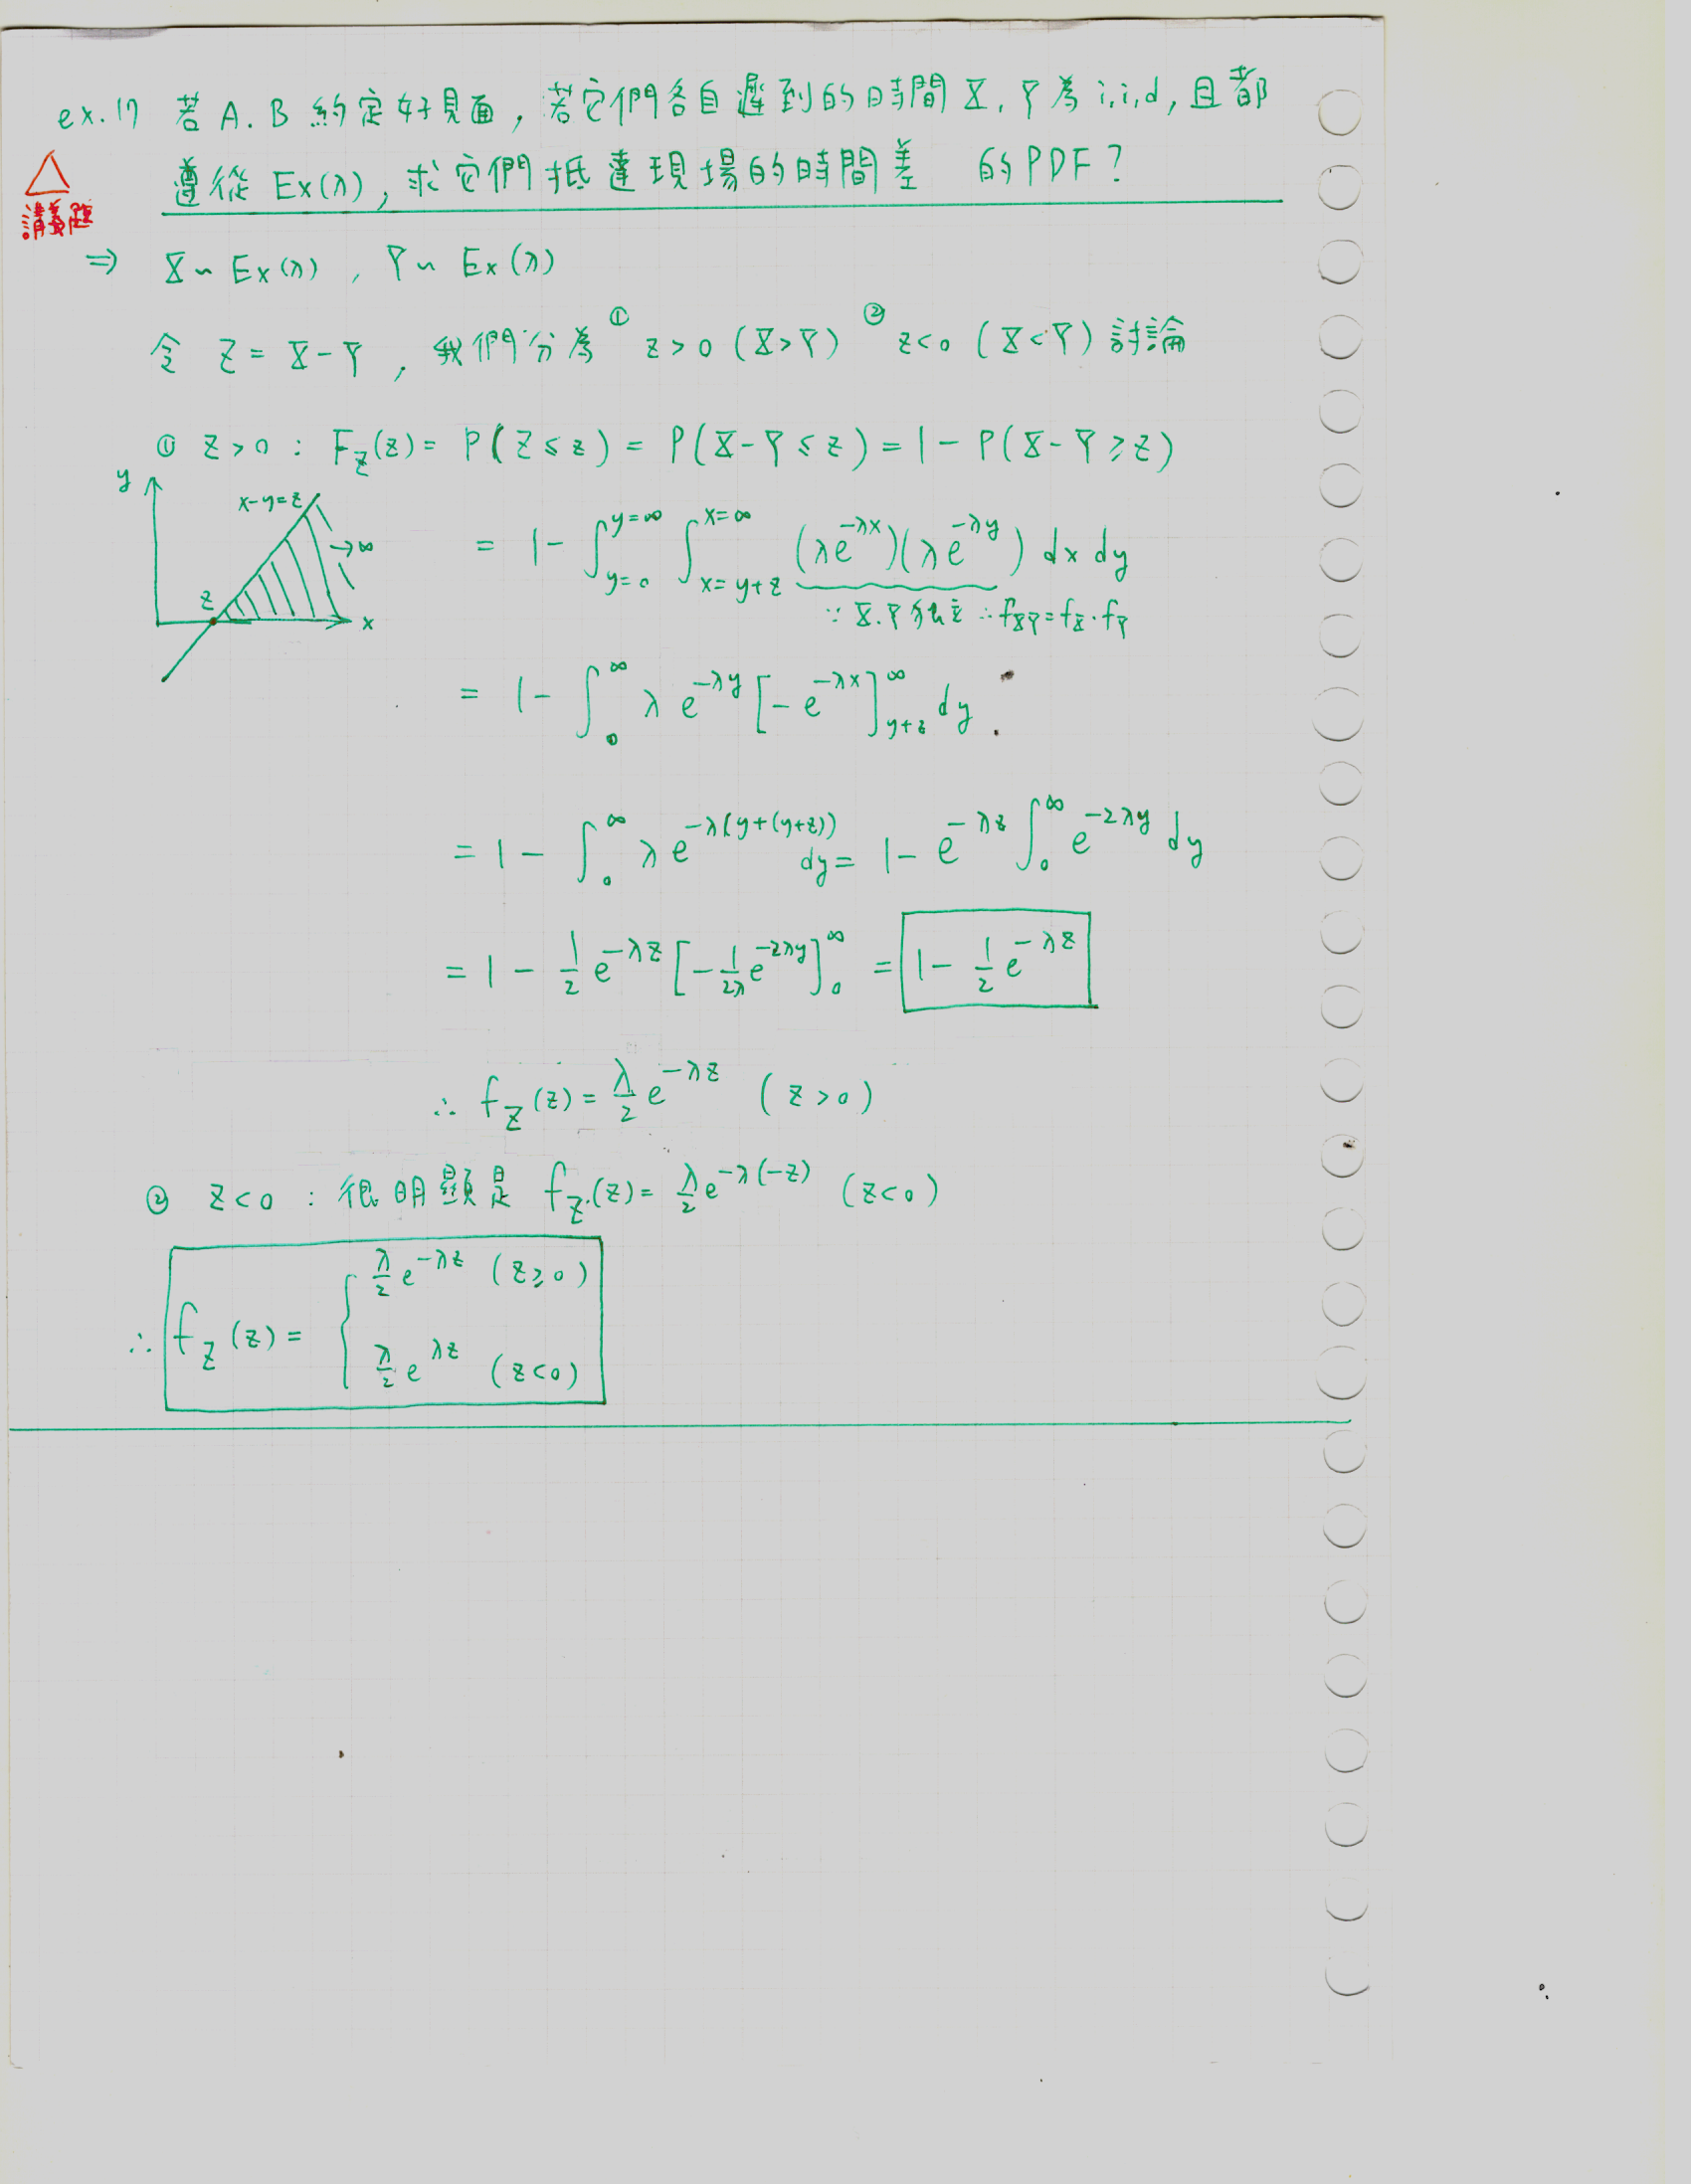 ex.17 若 A. B 約定好見面, 若它們各自遲到的時間 X, Y 為 i,i,d, 且都
△ 遵從 Ex(λ), 求它們抵達現場的時間差 的 PDF?
講義題
⇒ X ~ Ex(λ) , Y ~ Ex(λ)
令 Z = X - Y , 我們分為 ① z > 0 (X > Y) ② z < 0 (X < Y) 討論
① z > 0 : F_Z(z) = P(Z ≤ z) = P(X - Y ≤ z) = 1 - P(X - Y ≥ z)
y x-y=z →∞ z x
= 1 - ∫_{y=0}^{y=∞} ∫_{x=y+z}^{x=∞} (λe^{-λx})(λe^{-λy}) dx dy
∵ X.Y 獨立 ∴ f_{XY} = f_X · f_Y
= 1 - ∫_0^∞ λ e^{-λy} [-e^{-λx}]_{y+z}^∞ dy
= 1 - ∫_0^∞ λ e^{-λ(y+(y+z))} dy = 1 - e^{-λz} ∫_0^∞ e^{-2λy} dy
= 1 - 1/2 e^{-λz} [-1/2λ e^{-2λy}]_0^∞ = 1 - 1/2 e^{-λz}
∴ f_Z(z) = λ/2 e^{-λz} (z > 0)
② z < 0 : 很明顯是 f_Z(z) = λ/2 e^{-λ(-z)} (z < 0)
∴ f_Z(z) = { λ/2 e^{-λz} (z ≥ 0)
λ/2 e^{λz} (z < 0)